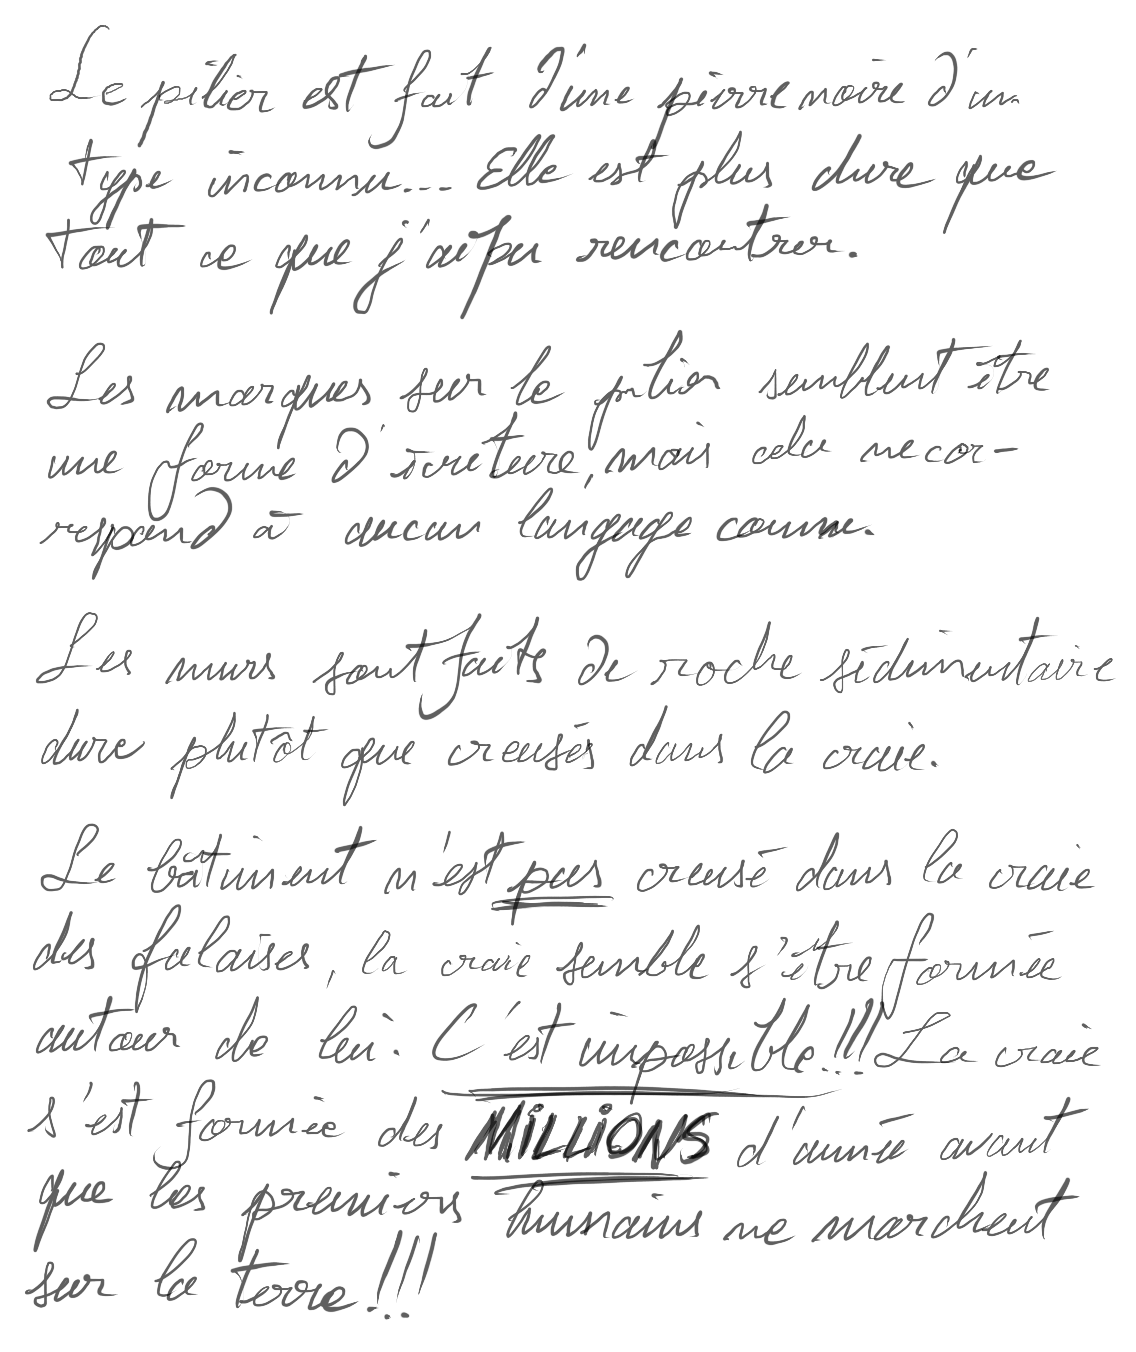 Le pilier est fait d'une pierre noire d'un
type inconnu... Elle est plus dure que
tout ce que j'ai pu rencontrer.
Les marques sur le pilier semblent être
une forme d'écriture, mais cela ne cor-
respond à aucun langage connu.
Les murs sont faits de roche sédimentaire
dure plutôt que creusés dans la craie.
Le bâtiment n'est pas creusé dans la craie
des falaises, la craie semble s'être formée
autour de lui. C'est impossible!!! La craie
s'est formée des MILLIONS d'année avant
que les premiers humains ne marchent
sur la terre!!!